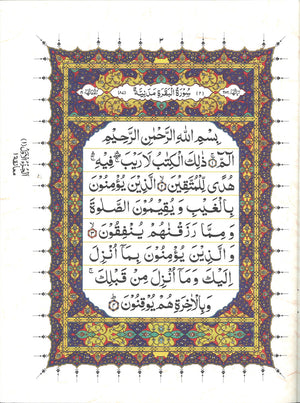 ٣
سُوْرَةُ الْبَقَرَةِ مَدَنِيَّةٌ (٢)
بِسْمِ اللّٰهِ الرَّحْمٰنِ الرَّحِيْمِ
الٓمّٓ ۚ ذٰلِكَ الْكِتٰبُ لَا رَيْبَ ۛ فِيْهِ ۛ
هُدًى لِّلْمُتَّقِيْنَ ۙ الَّذِيْنَ يُؤْمِنُوْنَ
بِالْغَيْبِ وَ يُقِيْمُوْنَ الصَّلٰوةَ
وَ مِمَّا رَزَقْنٰهُمْ يُنْفِقُوْنَ ۙ
وَ الَّذِيْنَ يُؤْمِنُوْنَ بِمَاۤ اُنْزِلَ
اِلَيْكَ وَ مَاۤ اُنْزِلَ مِنْ قَبْلِكَ ۚ
وَ بِالْاٰخِرَةِ هُمْ يُوْقِنُوْنَ ؕ